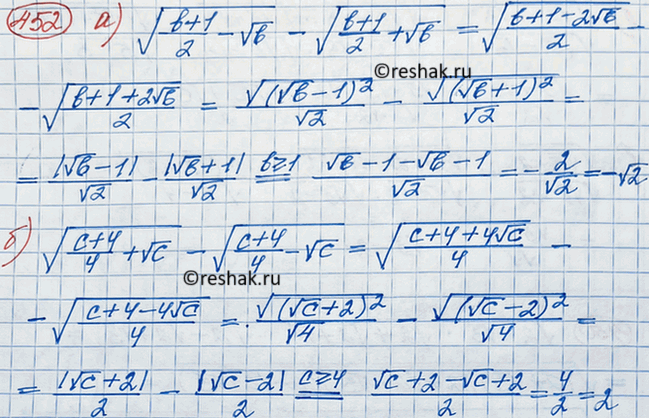 452 а) √((b+1)/2 − √b) − √((b+1)/2 + √b) = √((b+1−2√b)/2) −
©reshak.ru
− √((b+1+2√b)/2) = √((√b−1)²)/√2 − √((√b+1)²)/√2 =
= |√b−1|/√2 − |√b+1|/√2 b≥1 = (√b−1−√b−1)/√2 = −2/√2 = −√2
б) √((c+4)/4 + √c) − √((c+4)/4 − √c) = √((c+4+4√c)/4) −
©reshak.ru
− √((c+4−4√c)/4) = √((√c+2)²)/√4 − √((√c−2)²)/√4 =
= |√c+2|/2 − |√c−2|/2 c≥4 = (√c+2−√c+2)/2 = 4/2 = 2